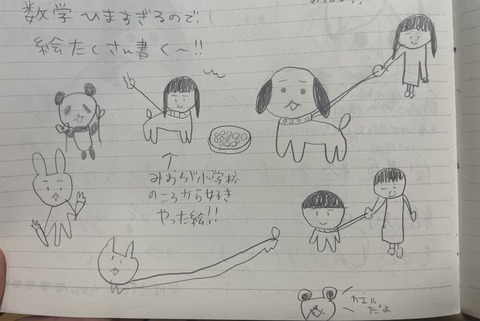 数学ひますぎるので！
絵たくさん書く〜!!
みおちが小学校
のころから好き
やった絵!!
カエル
だよ